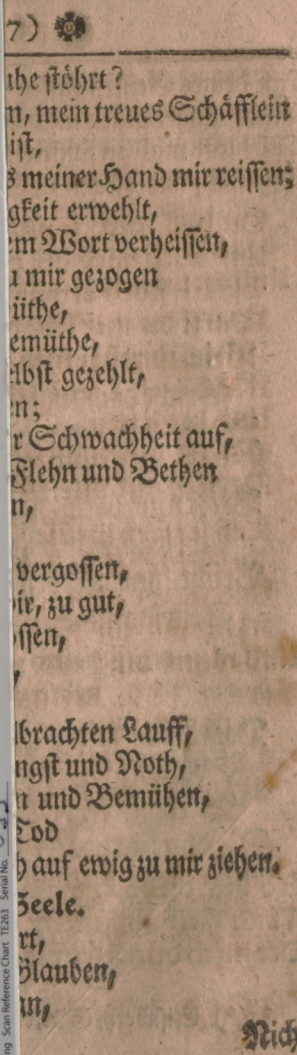 7)
uhe stöhrt?
n, mein treues Schäfflein
ist,
s meiner Hand mir reissen;
gkeit erwehlt,
em Wort verheissen,
u mir gezogen
üthe,
emüthe,
elbst gezehlt,
n;
r Schwachheit auf,
Flehn und Bethen
n,
vergossen,
ir, zu gut,
ossen,
,
lbrachten Lauff,
ngst und Noth,
n und Bemühen,
Tod
h auf ewig zu mir ziehen.
Seele.
rt,
Glauben,
an,
Nich
ng Scan Reference Chart TE263 Serial No.